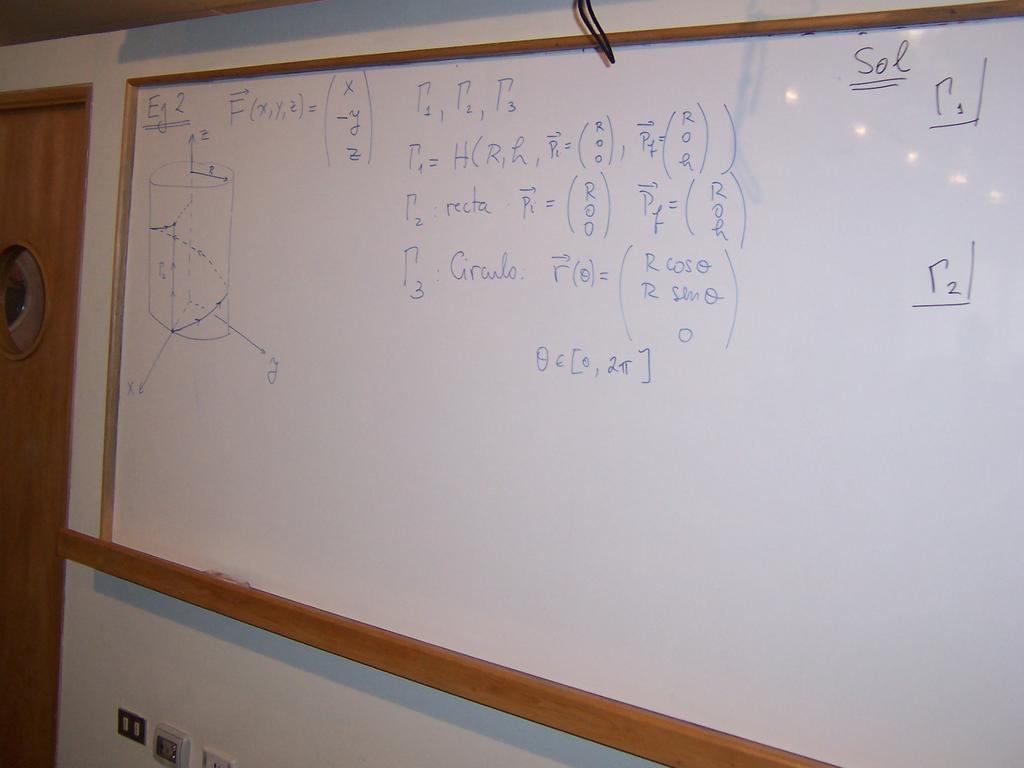 Ej 2 F⃗(x,y,z) = (x, -y, z) Γ₁, Γ₂, Γ₃
Γ₁ = H(R, h, p⃗i = (R, 0, 0), p⃗f = (R, 0, h))
Γ₂: recta p⃗i = (R, 0, 0) p⃗f = (R, 0, h)
Γ₃: Circulo: r⃗(θ) = (R cosθ, R senθ, 0)
θ ∈ [0, 2π]
z
R
Γ₂
x
y
Sol
Γ₁
Γ₂